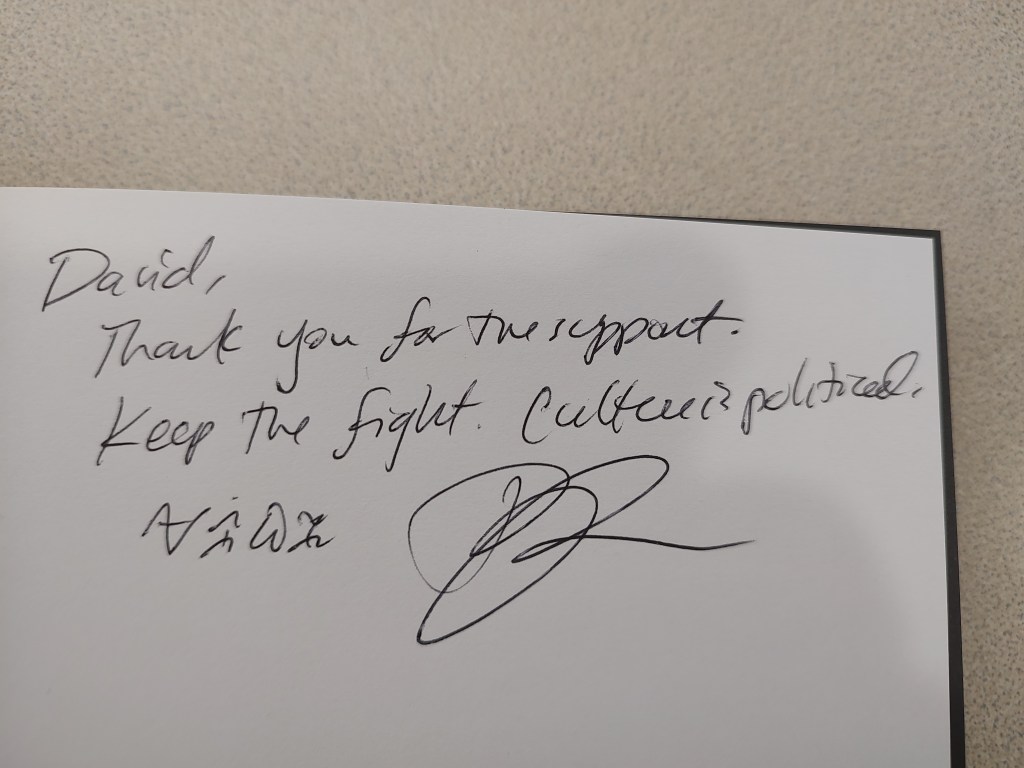 David,
Thank you for the support.
Keep the fight. Culture is political.